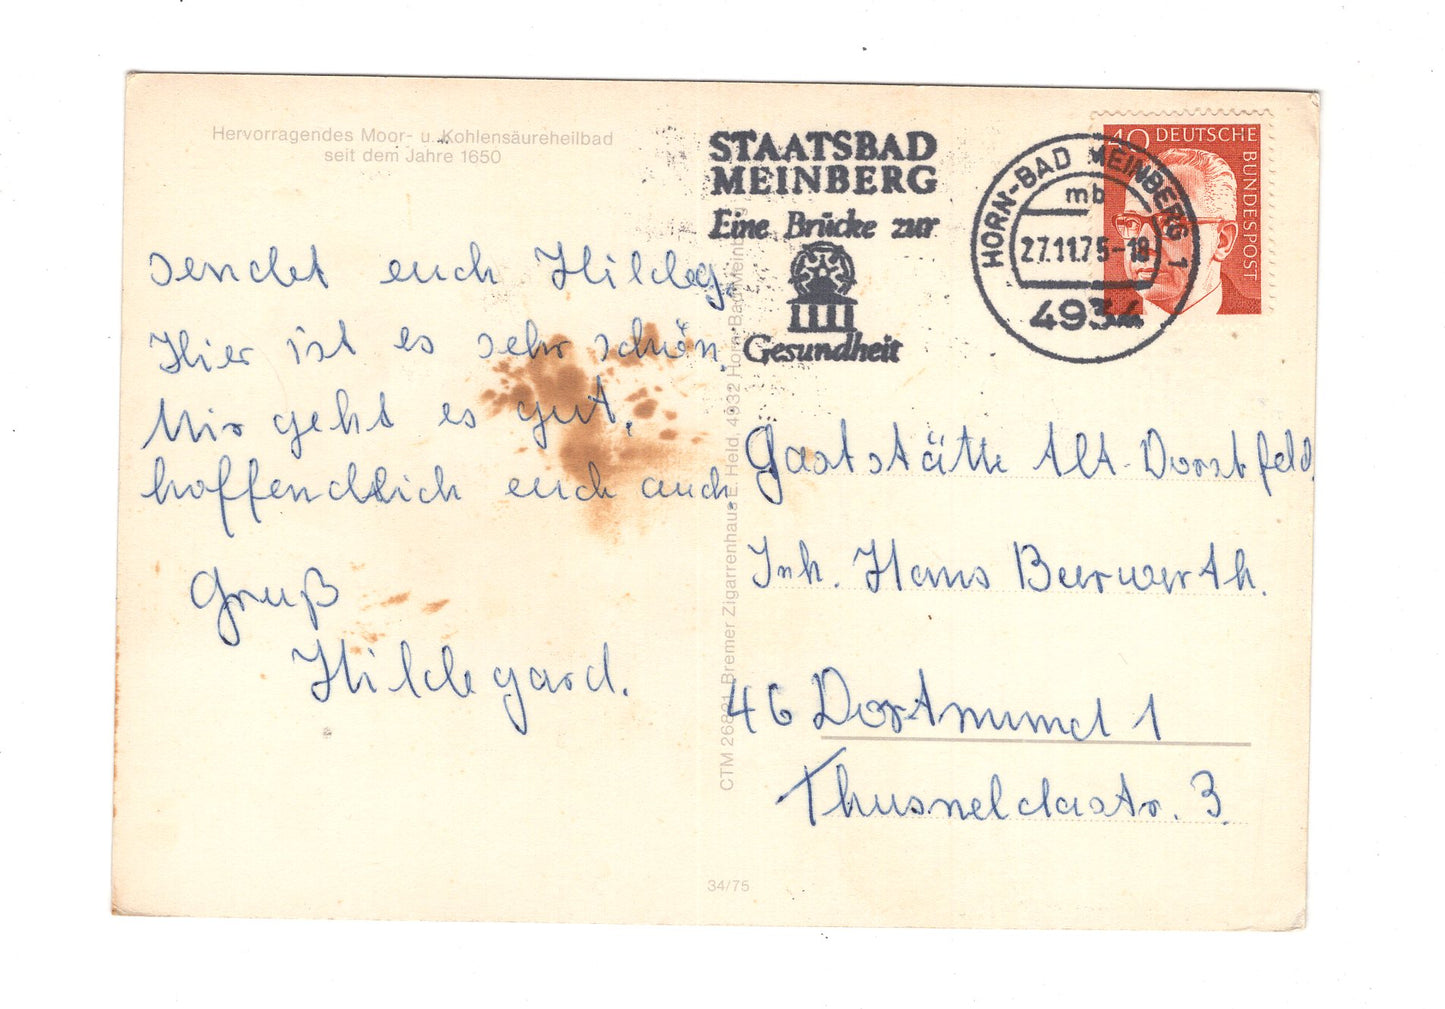 Hervorragendes Moor- u. Kohlensäureheilbad
seit dem Jahre 1650
sendet euch Hildeg.
Hier ist es sehr schön.
Mir geht es gut,
hoffendlich euch auch.
Gruß
Hildegard.
CTM 26821 Bremer Zigarrenhaus E. Held, 4932 Horn-Bad Meinberg
34/75
STAATSBAD
MEINBERG
Eine Brücke zur
Gesundheit
HORN-BAD MEINBERG 1
mb
27.11.75-18
4934
40 DEUTSCHE
BUNDESPOST
Gaststätte Alt-Dorstfeld
Inh. Hans Beerwerth.
46 Dortmund 1
Thusneldastr. 3.